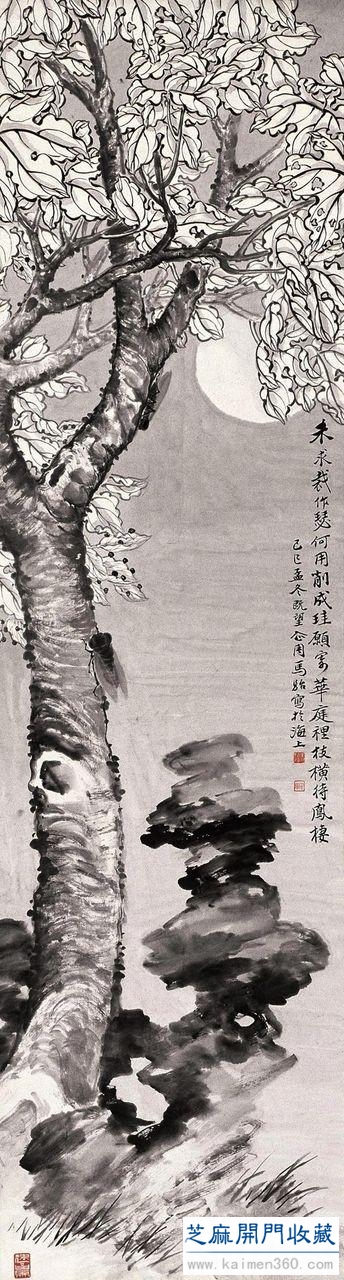 未求裁作瑟何用削成珪願寄華庭裡枝橫待鳳棲
己巳孟冬既望企周馬駘寫於海上
芝麻開門收藏
www.kaimen360.com/